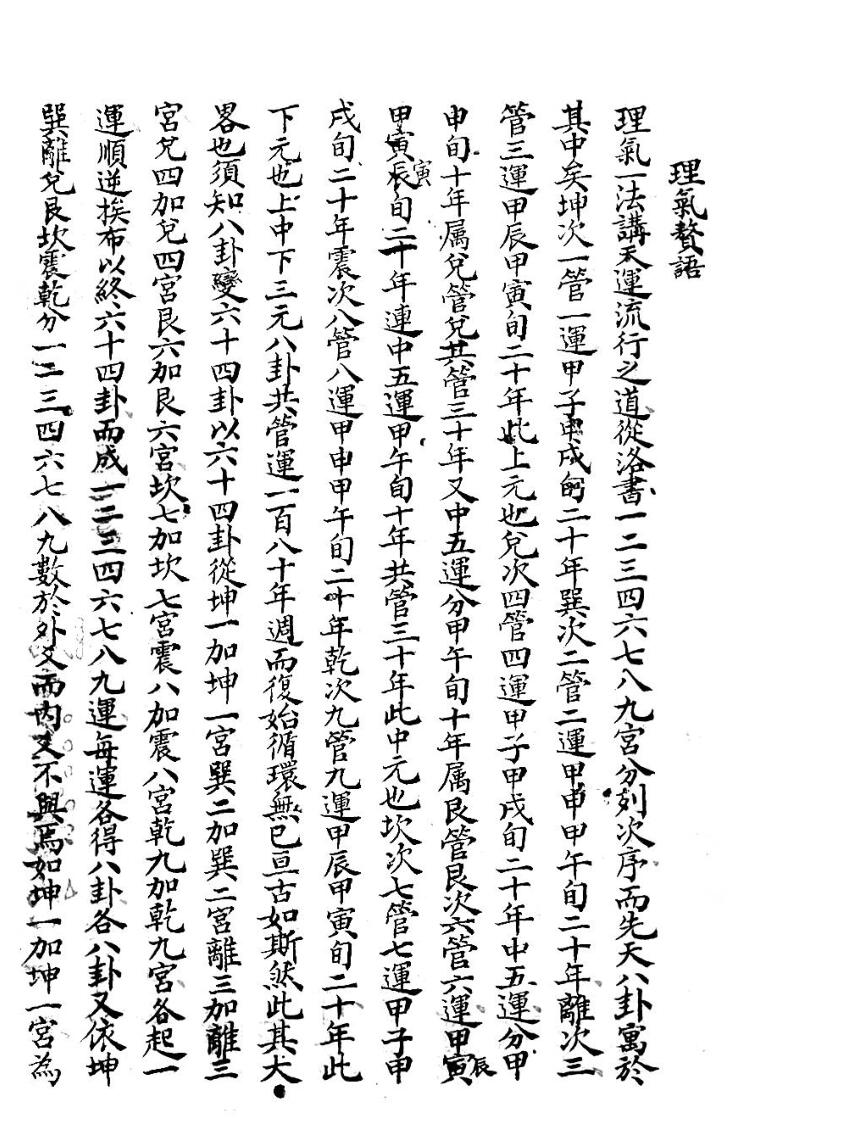 理氣贅語
理氣一法講天運流行之道從洛書一二三四六七八九宮分列次序而先天八卦寓於
其中矣坤次一管一運甲子甲戌旬二十年巽次二管二運甲申甲午旬二十年離次三
管三運甲辰甲寅旬二十年此上元也兌次四管四運甲子甲戌旬二十年中五運分甲
申旬十年属兌管兌共管三十年又中五運分甲午旬十年属艮管艮次六管六運甲寅辰
甲寅辰寅旬二十年連中五運甲午旬十年共管三十年此中元也坎次七管七運甲子甲
戌旬二十年震次八管八運甲申甲午旬二十年乾次九管九運甲辰甲寅旬二十年此
下元也上中下三元八卦共管運一百八十年週而復始循環無已亘古如斯然此其大
畧也須知八卦變六十四卦以六十四卦從坤一加坤一宮巽二加巽二宮離三加離三
宮兌四加兌四宮艮六加艮六宮坎七加坎七宮震八加震八宮乾九加乾九宮各起一
運順逆挨布以終六十四卦而成一二三四六七八九運每運各得八卦各八卦又依坤
巽離兌艮坎震乾分一二三四六七八九數於外爻而內爻不與焉如坤一加坤一宮為